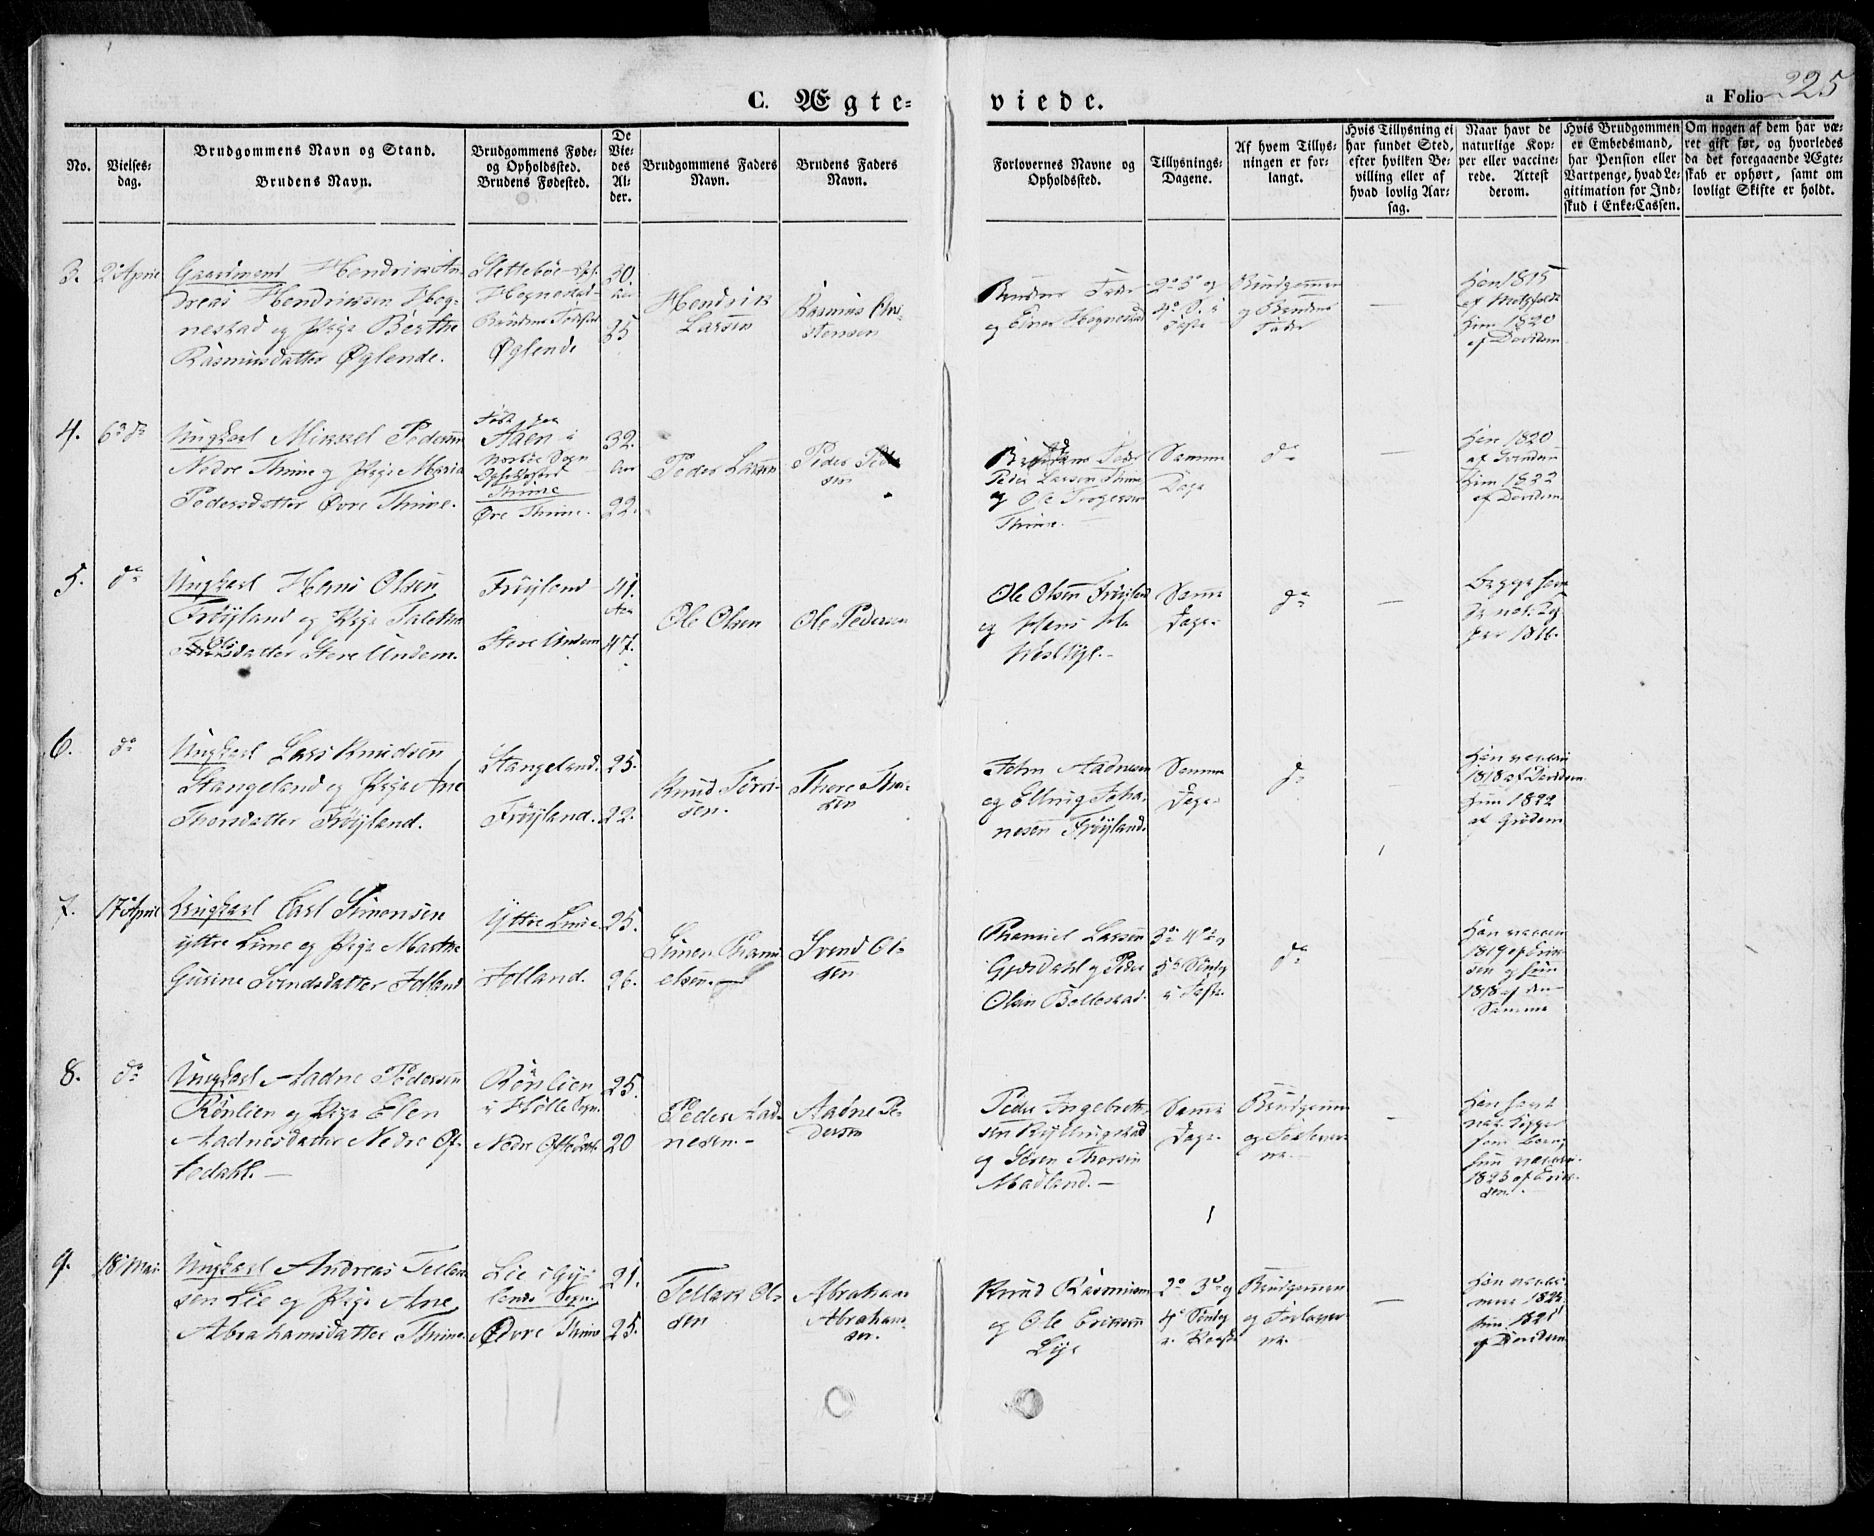 C. Ægte-
viede.
a Folio 225
No.
Vielses-
dag.
Brudgommens Navn og Stand.
Brudens Navn.
Brudgommens Føde-
og Opholdssted.
Brudens Fødested.
De
Vie-
des
Al-
der.
Brudgommens Faders
Navn.
Brudens Faders
Navn.
Forlovernes Navne og
Opholdssted.
Tillysnings-
Dagene.
Af hvem Tillys-
ningen er for-
langt.
Hvis Tillysning ei
har fundet Sted,
efter hvilken Be-
villing eller af
hvad lovlig Aar-
sag.
Naar havt de
naturlige Kop-
per eller vaccine-
rede. Attest
derom.
Hvis Brudgommen
er Embedsmand,
har Pension eller
Vartpenge, hvad Le-
gitimation for Ind-
skud i Enke-Cassen.
Om nogen af dem har væ-
ret gift før, og hvorledes
da det foregaaende Ægte-
skab er ophørt, samt om
lovligt Skifte er holdt.
3.
2 April
Gaardmand Hendrik An-
dreas Hendriksen Hog-
nestad og Pige Berthe
Rasmusdatter Øglende.
Slettebøe
Hognestad
Brudens Fødested
Øglende
30.
Aar
35
Hendrik
Larsen
Rasmus
stensen
Brudens Fader
og Hognestad
2° 3° og
4° S. i
Faste
Brudgommen
og Brudens
Fader
—
Han 1815
af
Hun 1820
af Davidsen
4.
6° d°
Ungkarl Mikkel Pedersen
Nedre Thime og Pige Maria
Pedersdatter Øvre Thime.
Født paa
Aaen i
Sogn
Opholdssted
Thime
Øvre Thime.
32.
Aar
22.
Peder Larsen
Peder Peder
sen
Brudens Fader
Peder Larsen Thime
og Ole
Thime.
Samme
Dage
d°
—
Han 1820
af Svendsen
Hun 1822
af Davidsen
5.
d°
Ungkarl Hans Olsen
Frøyland og Pige Taletha
Olsdatter Store Undem.
Frøyland
Store Undem
41.
Aar
47.
Ole Olsen
Ole Pedersen
Ole Olsen Frøyland
og Hans
Samme
Dage.
d°
—
Begge have
d. nat. Kop
per 1816.
6.
d°
Ungkarl Lars Knudsen
Stangeland og Pige Ane
Thorsdatter Frøyland.
Stangeland.
Frøyland.
25.
22.
Knud
sen.
Thore Tho-
sen
John Aadnesen
og Elling Joha-
nesen Frøyland.
Samme
Dage.
d°
Han vaccin
1818 af Davidsen
Hun 1822
af Grødem
7.
17 April
Ungkarl Carl Simonsen
Yttre Lime og Pige Marthe
Gurine Svendsdatter Jolland
Yttre Lime
Jolland.
25.
26.
Simon Thami-
elsen.
Svend Ol-
sen
Thamiel Larsen
Gjesdahl og Peder
Olsen Bollestad.
3° 4° og
5° Søndag
i Faste.
d°
Han vaccin
1819 af Erik-
sen og hun
1818 af den
Samme
8.
d°
Ungkarl Aadne Pedersen
Rønlien og Pige Elen
Aadnesdatter Nedre Of-
tedahl.—
Rønlien
i Hølle Sogn.
Nedre Oftedahl
25.
20
Peder Aad-
nesen.—
Aadne Pe-
dersen
Peder Ingebret-
sen Kyllingstad
og Søren Thorsen
Madland.—
Samme
Dage.
Brudgommen
og Forlover-
ne.
—
Han havt
nat. Kopper
som Barn,
hun vaccin.
1823 af Erik-
sen.
9.
18 Mai
Ungkarl Andreas Tollak-
sen Lie og Pige Ane
Abrahamsdatter Thime.
Lie i Gy-
lands Sogn.
Øvre Thime
21.
25.
Tollak Ol-
sen
Abraham
Abraham-
sen.
Knud Rasmusen
og Ole Eriksen
Lye
2° 3° og
4° Søndag
e. Paaske
Brudgommen
og Forlover-
ne.
—
Han vacci-
nere 1823.
hun 1821
af Davidsen